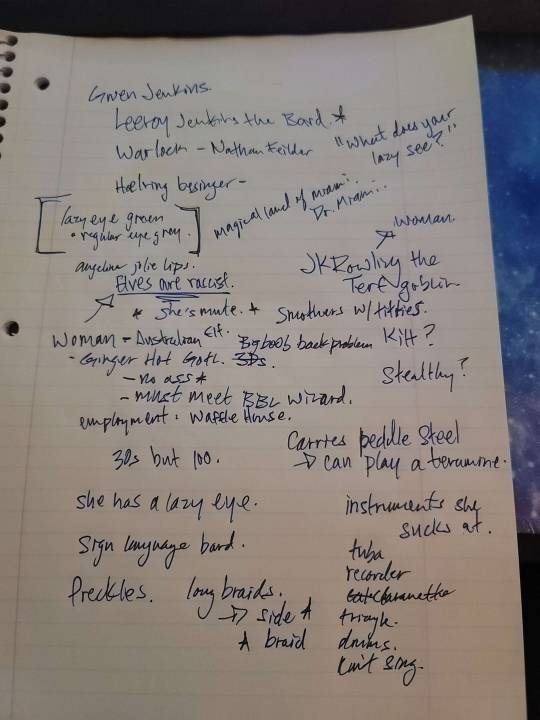 Gwen Jenkins.
Leeroy Jenkins the Bard. *
Warlock - Nathan Feilder
"What does your
lazy see?"
Haelving besinger -
magical land of miami..
Dr. Miami...
[lazy eye green
• regular eye grey.]
woman.
JK Rowling the
Terf goblin
angelina jolie lips.
Elves are raccist.
* she's mute. *
Smothers w/ titties.
Woman - Australian Elf.
Big boob back problem
Kilt?
- Ginger Hot Goth.
- no ass *
- must meet BBL wizard.
Stealthy?
employment: Waffle House.
30s but 100.
Carries peddle steel
→ can play a teramine.
she has a lazy eye.
Sign language bard.
freckles.
long braids.
→ side A
A braid
instruments she
sucks at.
tuba
recorder
triangle.
drums.
can't sing.